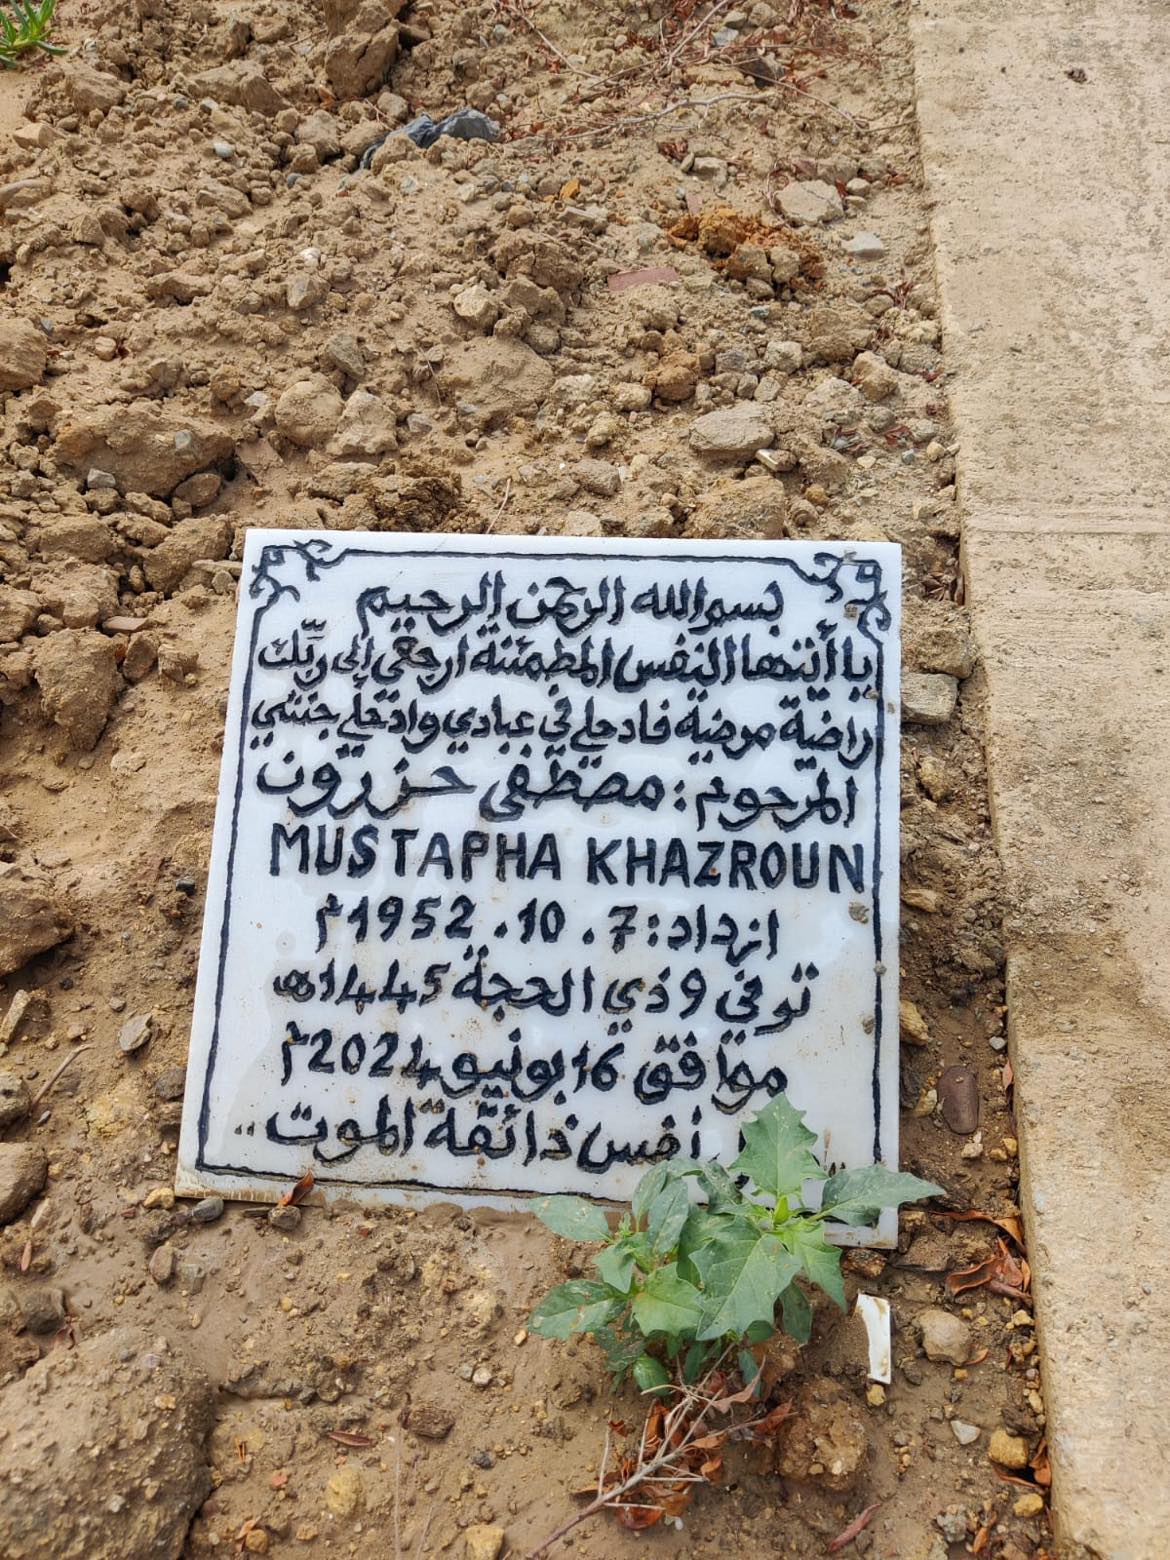 بسم الله الرحمن الرحيم
يا أيتها النفس المطمئنة ارجعي إلى ربّك
راضية مرضية فادخلي في عبادي وادخلي جنتي
المرحوم : مصطفى خزرون
MUSTAPHA KHAZROUN
ازداد : 7 . 10 . 1952م
توفي 9 ذي الحجة 1445هـ
موافق 16 يونيو 2024م
نفس ذائقة الموت ..